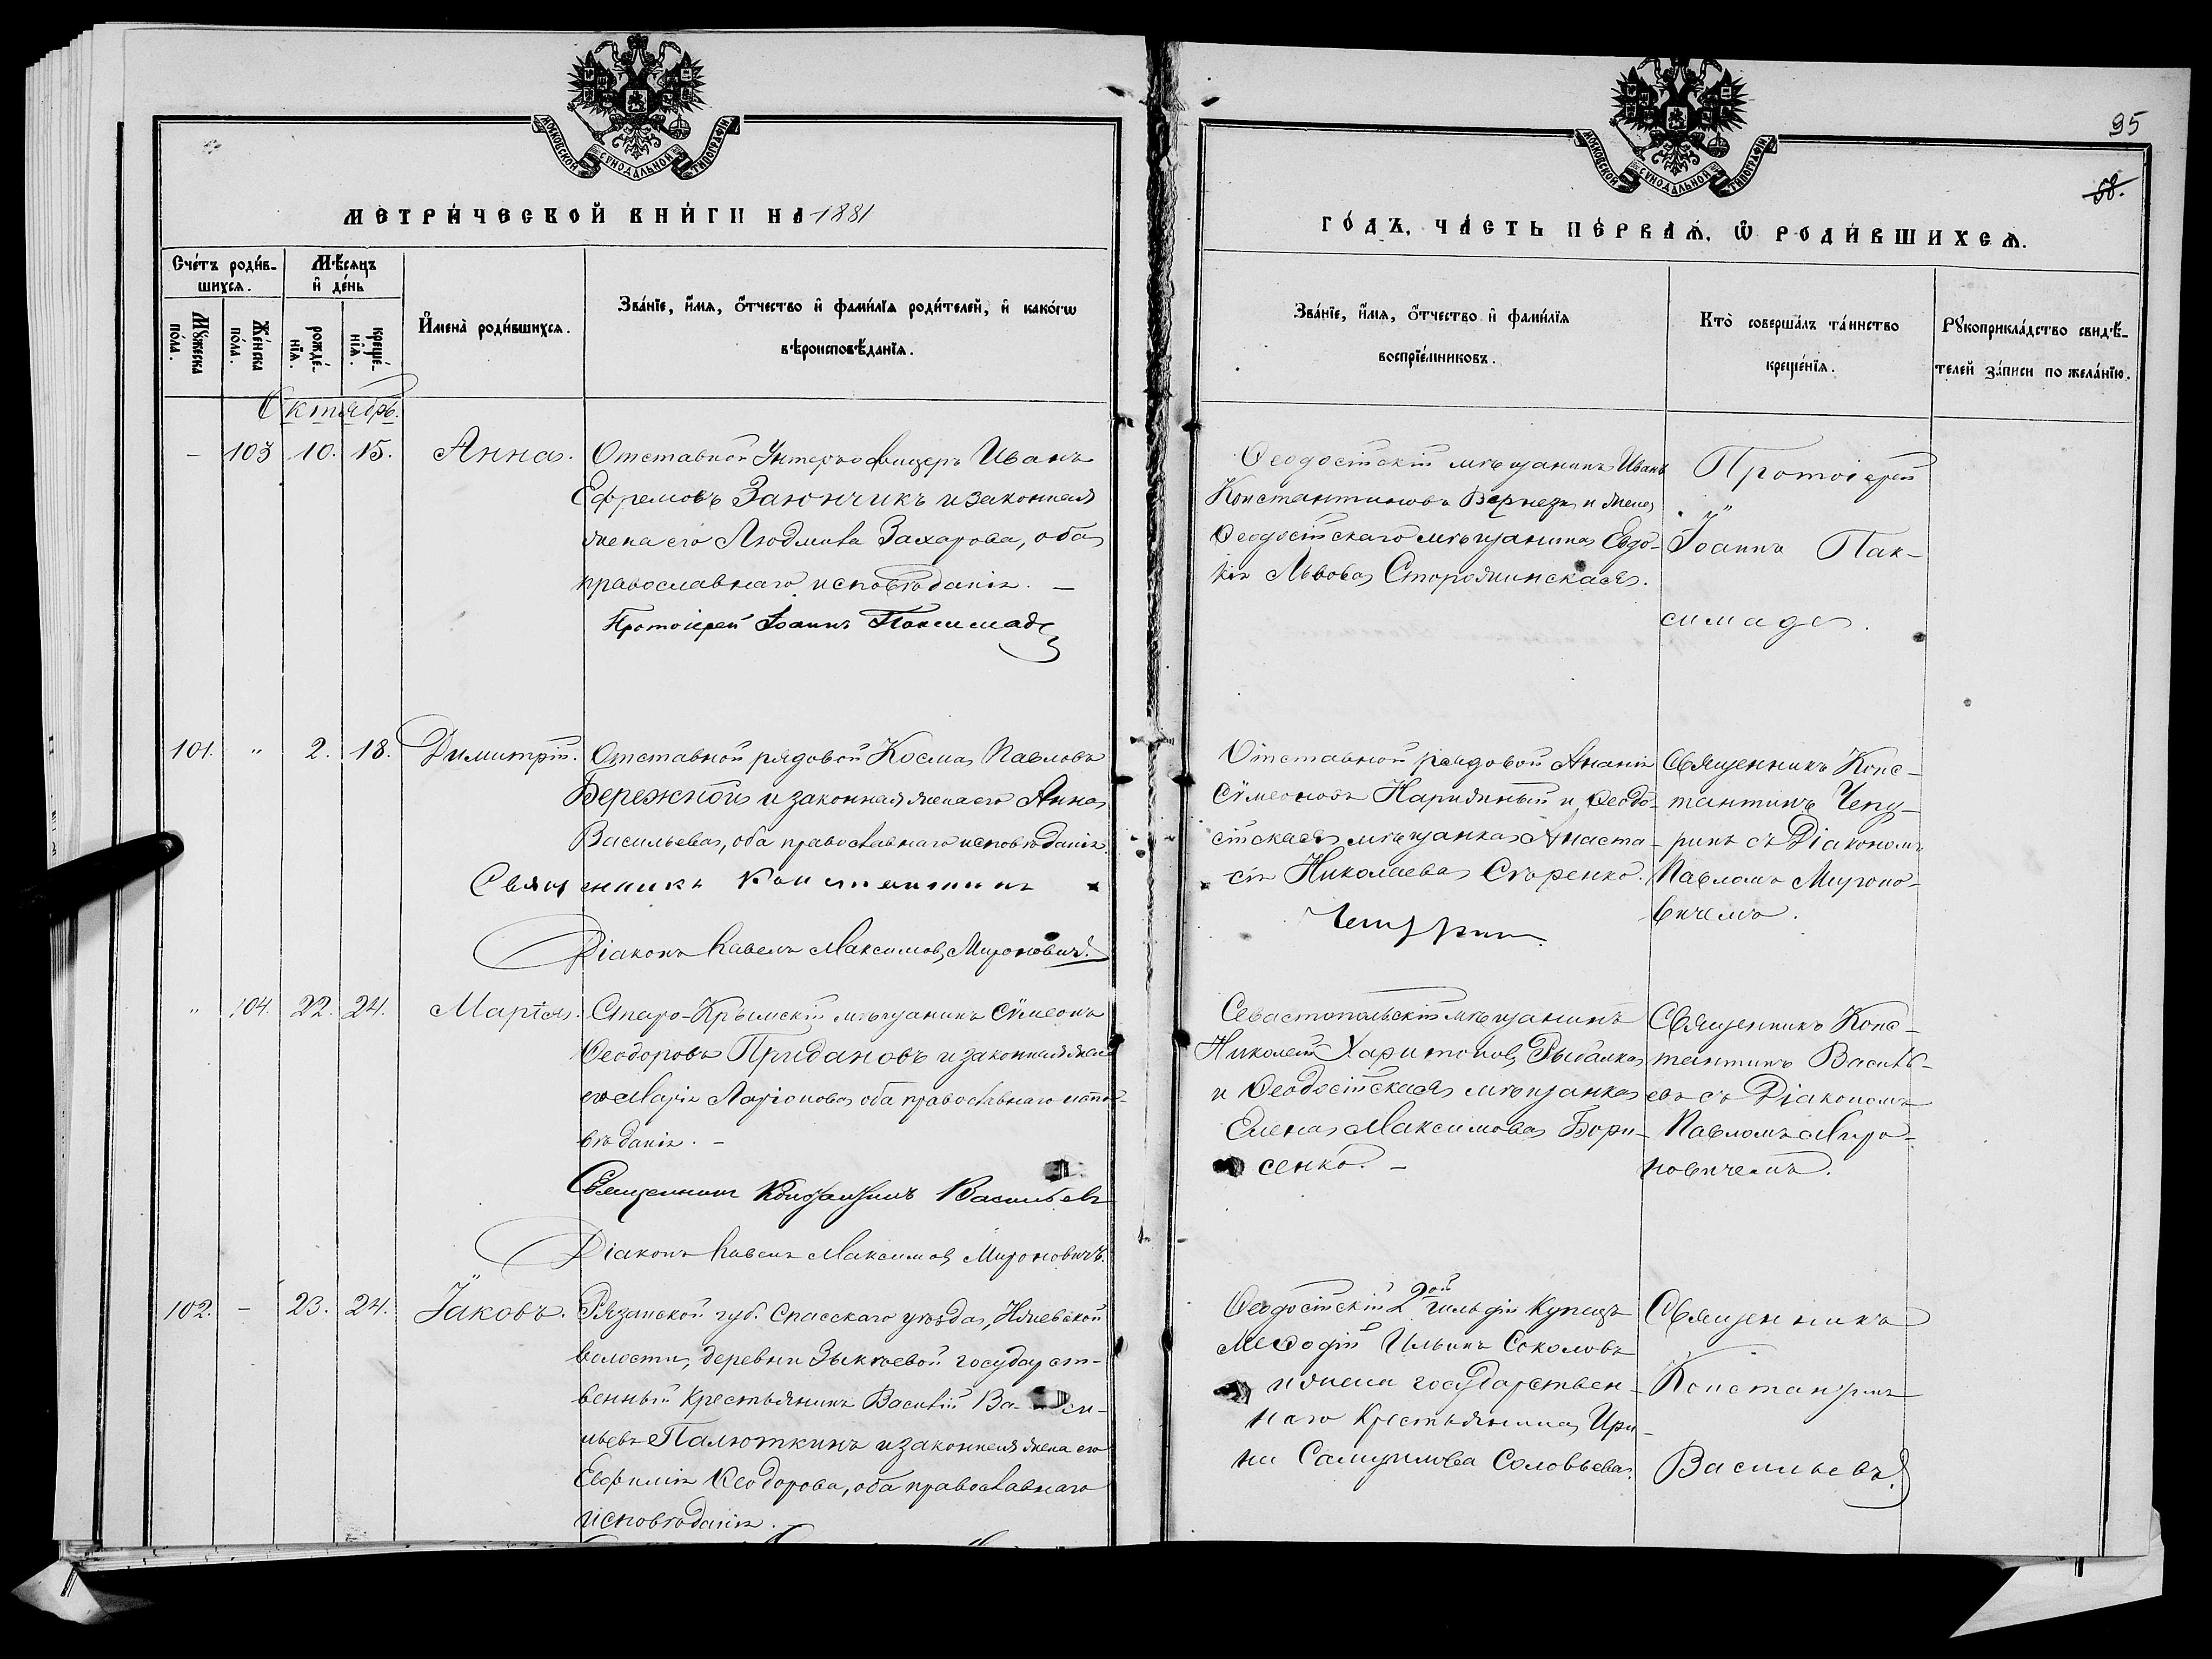 МОСКОВСКОЙ СУНОДАЛЬНОЙ ТИПОГРАФІИ
МЕТРИЧЕСКОЙ КНИГИ НА 1881
Счетъ родив-
шихся.
Мѣсяцъ
и день
Мужеска
пола.
Женска
пола.
рожде-
нія.
креще-
нія.
Имена родившихся.
Званіе, имя, отчество и фамилія родителей, и какогѡ
вѣроисповѣданія.
Октябрь.
- 103 10. 15. Анна.
Отставной Унтеръ-офицеръ Иванъ
Ефремовъ Заюнчикъ и законная
жена его Людмила Захарова, оба
православнаго исповѣданія. -
Протоіерей Іоаннъ Паксимаде
101. " 2. 18. Димитрій.
Отставной рядовой Косма Павловъ
Бережной и законная жена его Анна
Васильева, оба православнаго исповѣданія.
Священникъ Константинъ
Діаконъ Павелъ Максимовъ Мироновичъ.
" 104. 22. 24. Марія.
Старо-Крымскій мѣщанинъ Сѵмеонъ
Ѳеодоровъ Придановъ и законная жена
его Марія Ларіонова оба православнаго испо-
вѣданія. -
Священникъ Константинъ Васильевъ
Діаконъ Павелъ Максимовъ Мироновичъ.
102. - 23. 24. Іаковъ.
Рязанской губ. Спасскаго уѣзда, Ижевской
волости, деревни Зыкѣевой государст-
венный крестьянинъ Василій Ва- си-
льевъ Палюткинъ и законная жена его
Евфимія Ѳеодорова, оба православнаго
исповѣданія. -
МОСКОВСКОЙ СУНОДАЛЬНОЙ ТИПОГРАФІИ
95
58.
ГОДЪ, ЧАСТЬ ПЕРВАЯ, Ѡ РОДИВШИХСЯ.
Званіе, имя, отчество и фамилія
воспріемниковъ.
Кто совершалъ таинство
крещенія.
Рукоприкладство свидѣ-
телей записи по желанію.
Ѳеодосійскій мѣщанинъ Иванъ
Константиновъ и жена
Ѳеодосійскаго мѣщанина Евдо-
кія Львова Сторожинская.
Протоіерей
Іоаннъ Пак-
симаде.
Отставной рядовой Ананія
Сѵмеоновъ Нарижный и Ѳеодо-
сійская мѣщанка Анаста-
сія Николаева Сѣренко.
Чепуринъ
Священникъ Конс-
тантинъ Чепу-
ринъ съ Діакономъ
Павломъ Мироно-
вичемъ.
Севастопольскій мѣщанинъ
Николай Харитоновъ Рыбалка
и Ѳеодосійская мѣщанка
Елена Максимова Бори-
сенко. -
Священникъ Конс-
тантинъ Василь-
евъ съ Діакономъ
Павломъ Миро-
новичемъ.
Ѳеодосійскій 2ой гильдіи Купецъ
Меѳодій Ильинъ Соколовъ
и жена государствен-
наго крестьянина Ири-
на Самуилова Соловьева.
Священникъ
Константинъ
Васильевъ.